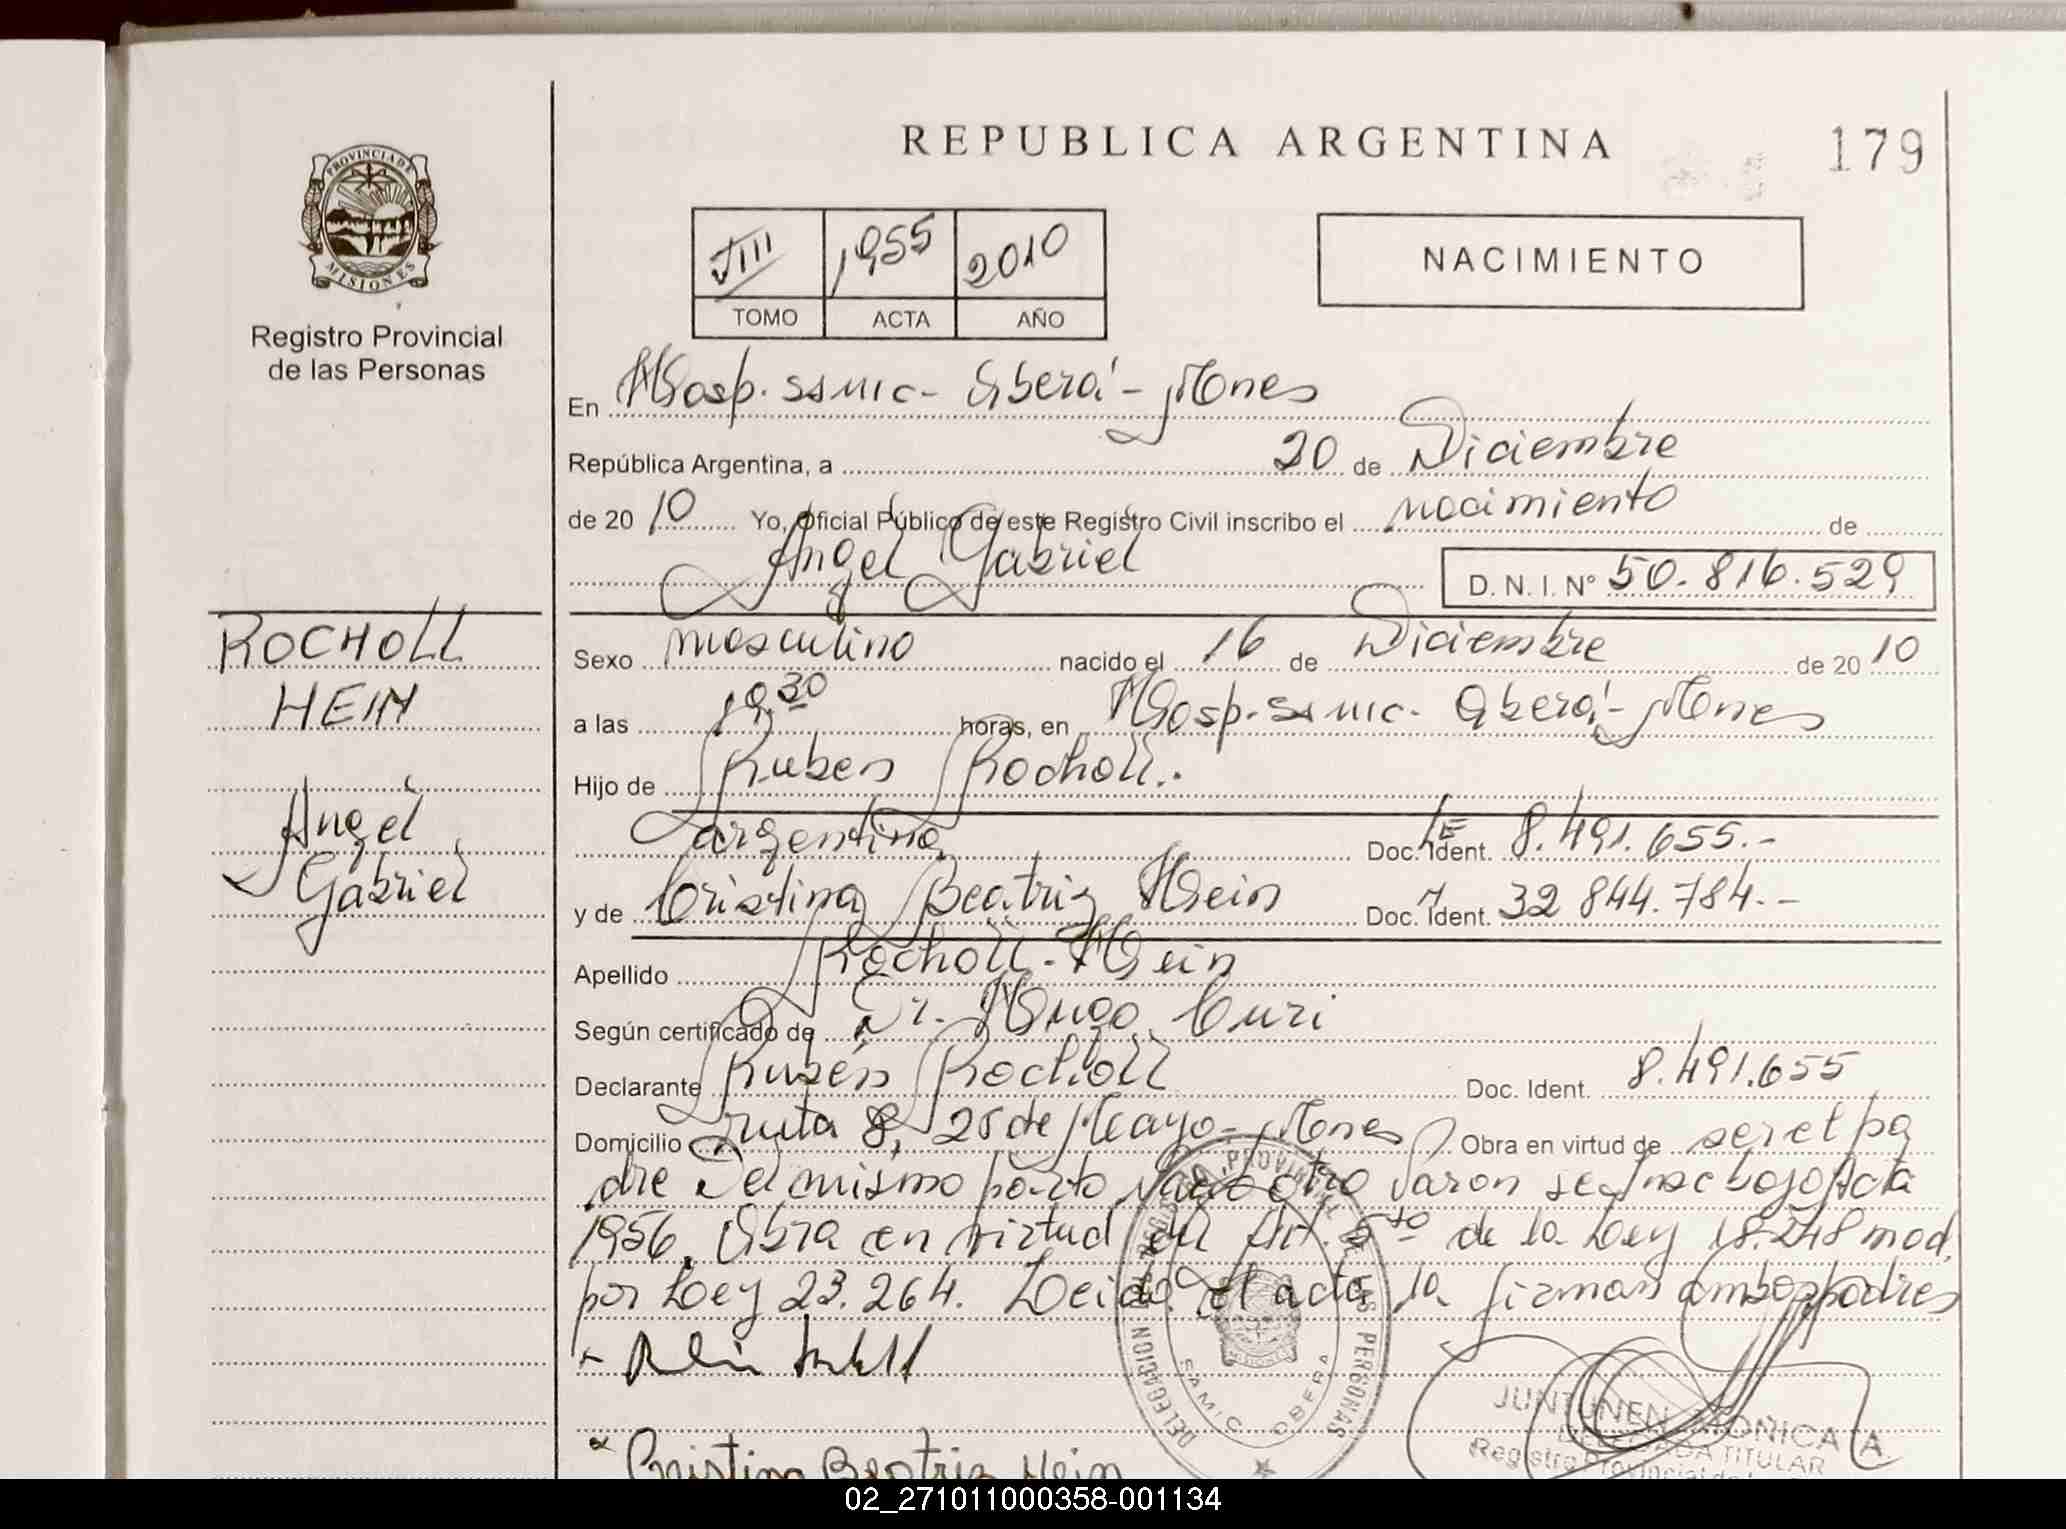 REPUBLICA ARGENTINA
179
PROVINCIA DE
MISIONES
Registro Provincial
de las Personas
VIII 1955 2010
TOMO ACTA AÑO
NACIMIENTO
En Hosp. SAMIC - Oberá - Mnes
República Argentina, a 20 de Diciembre
de 2010 Yo, Oficial Público de este Registro Civil inscribo el nacimiento de
Angel Gabriel
D. N. I. Nº 50.816.529
ROCHOLL
HEIN
Angel
Gabriel
Sexo masculino nacido el 16 de Diciembre de 2010
a las 19.30 horas, en Hosp. SAMIC. Oberá - Mnes
Hijo de Ruben Rocholl.
argentino Doc. Ident. LE 8.491.655.-
y de Cristina Beatriz Hein Doc. Ident. 32 844.784.-
Apellido Rocholl - Hein
Según certificado de Dr. Hugo Curi
Declarante Rubén Rocholl Doc. Ident. 8.491.655
Domicilio ruta 8, 25 de Mayo - Mnes Obra en virtud de ser el pa
dre Del mismo parto nacio otro varon se insc bajo Acta
1956. Obra en virtud del Art. 5to de la Ley 18.248 mod.
por Ley 23.264. Leida el acta la firman ambos padres
Cristina Beatriz Hein
DELEGACION REGISTRO PROVINCIAL DE LAS PERSONAS
SAMIC OBERA
MISIONES
JUNTUNEN MONICA A.
DELEGADA TITULAR
Registro Provincial de
02_271011000358-001134